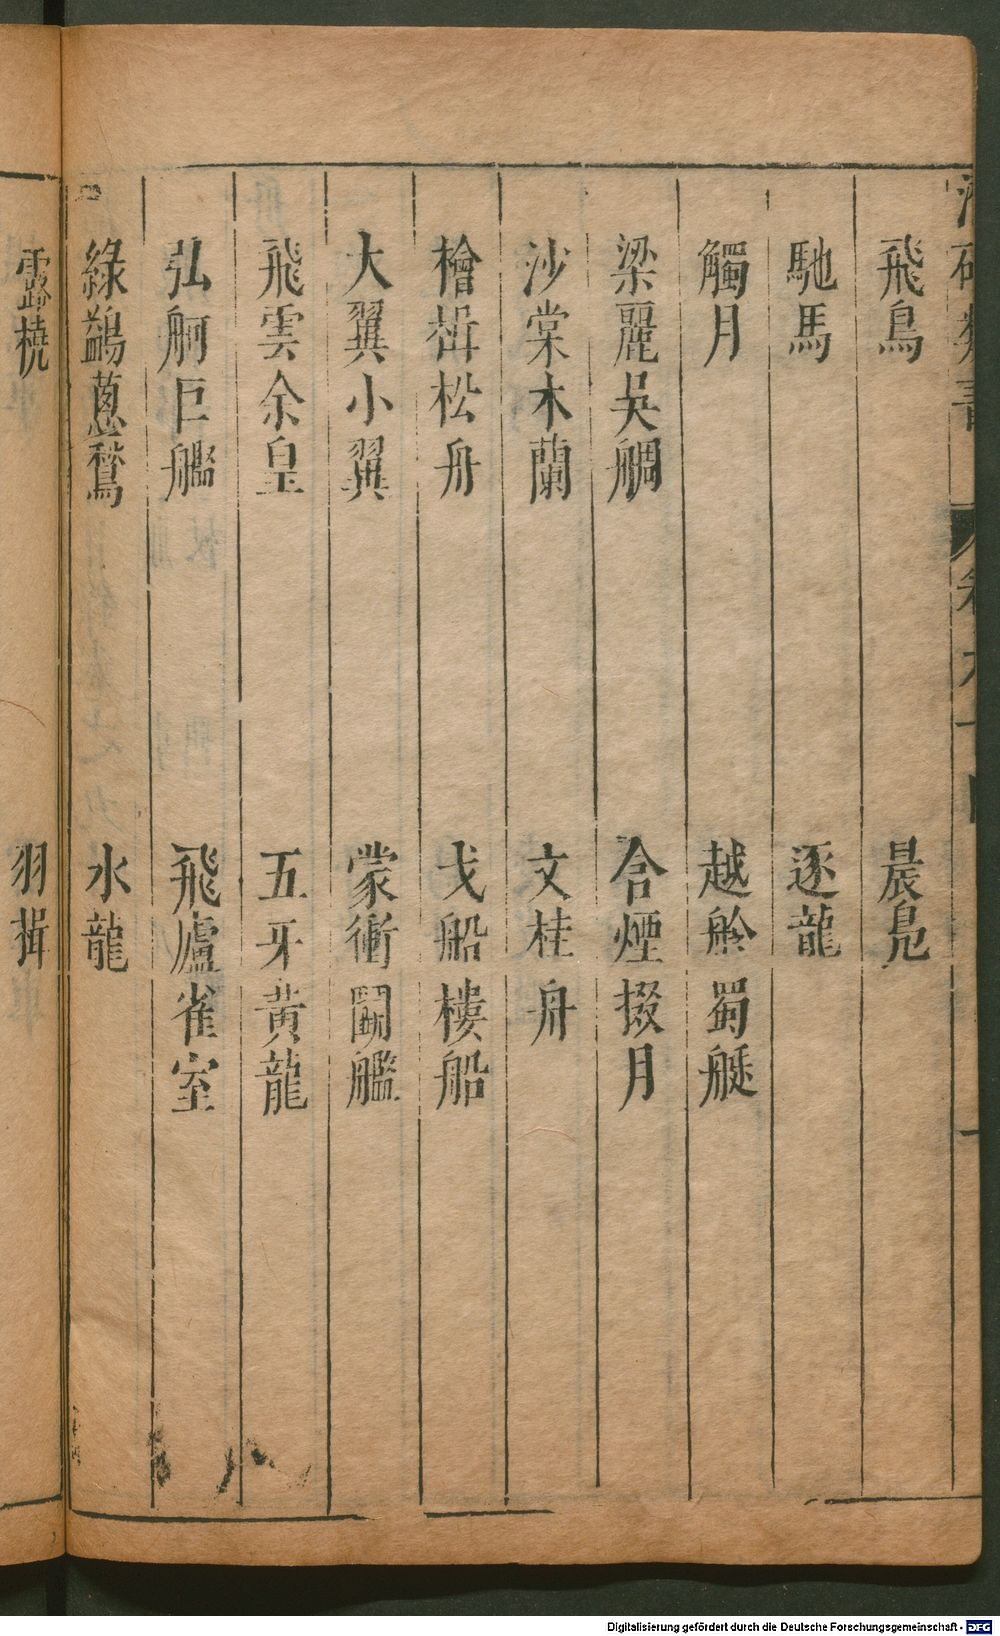 飛鳥　晨鳧
馳馬　逐龍
觸月　越舲蜀艇
梁麗吳舸　含煙掇月
沙棠木蘭　文桂舟
檜楫松舟　戈船樓船
大翼小翼　蒙衝鬭艦
飛雲余皇　五牙黃龍
弘舸巨艦　飛廬雀室
綠鷁蔥鶖　水龍
露橈　羽楫
Digitalisierung gefördert durch die Deutsche Forschungsgemeinschaft - DFG